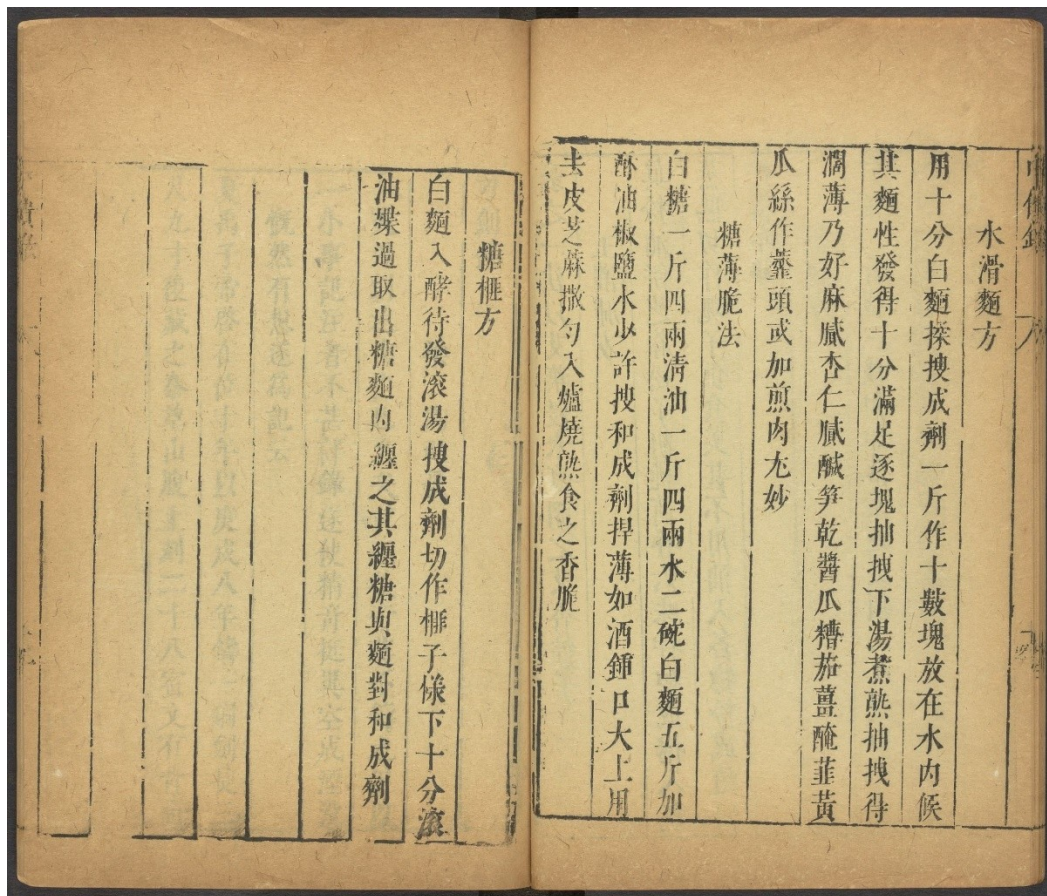 水滑麵方
用十分白麵揉搜成劑一斤作十數塊放在水內候
其麵性發得十分滿足逐塊抽拽下湯煮熟抽拽得
濶薄乃好麻膩杏仁膩鹹笋乾醬瓜糟茄薑醃韮黃
瓜絲作虀頭或加煎肉尤妙
糖薄脆法
白糖一斤四兩清油一斤四兩水二碗白麵五斤加
酥油椒鹽水少許搜和成劑捍薄如酒鍾口大上用
去皮芝蔴撒勻入爐燒熟食之香脆
糖榧方
白麵入酵待發滾湯搜成劑切作榧子樣下十分滾
油煠過取出糖麵內纏之其纏糖與麵對和成劑